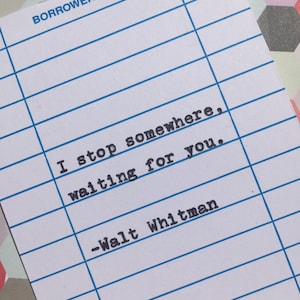 BORROWER
I stop somewhere,
waiting for you.
-Walt Whitman